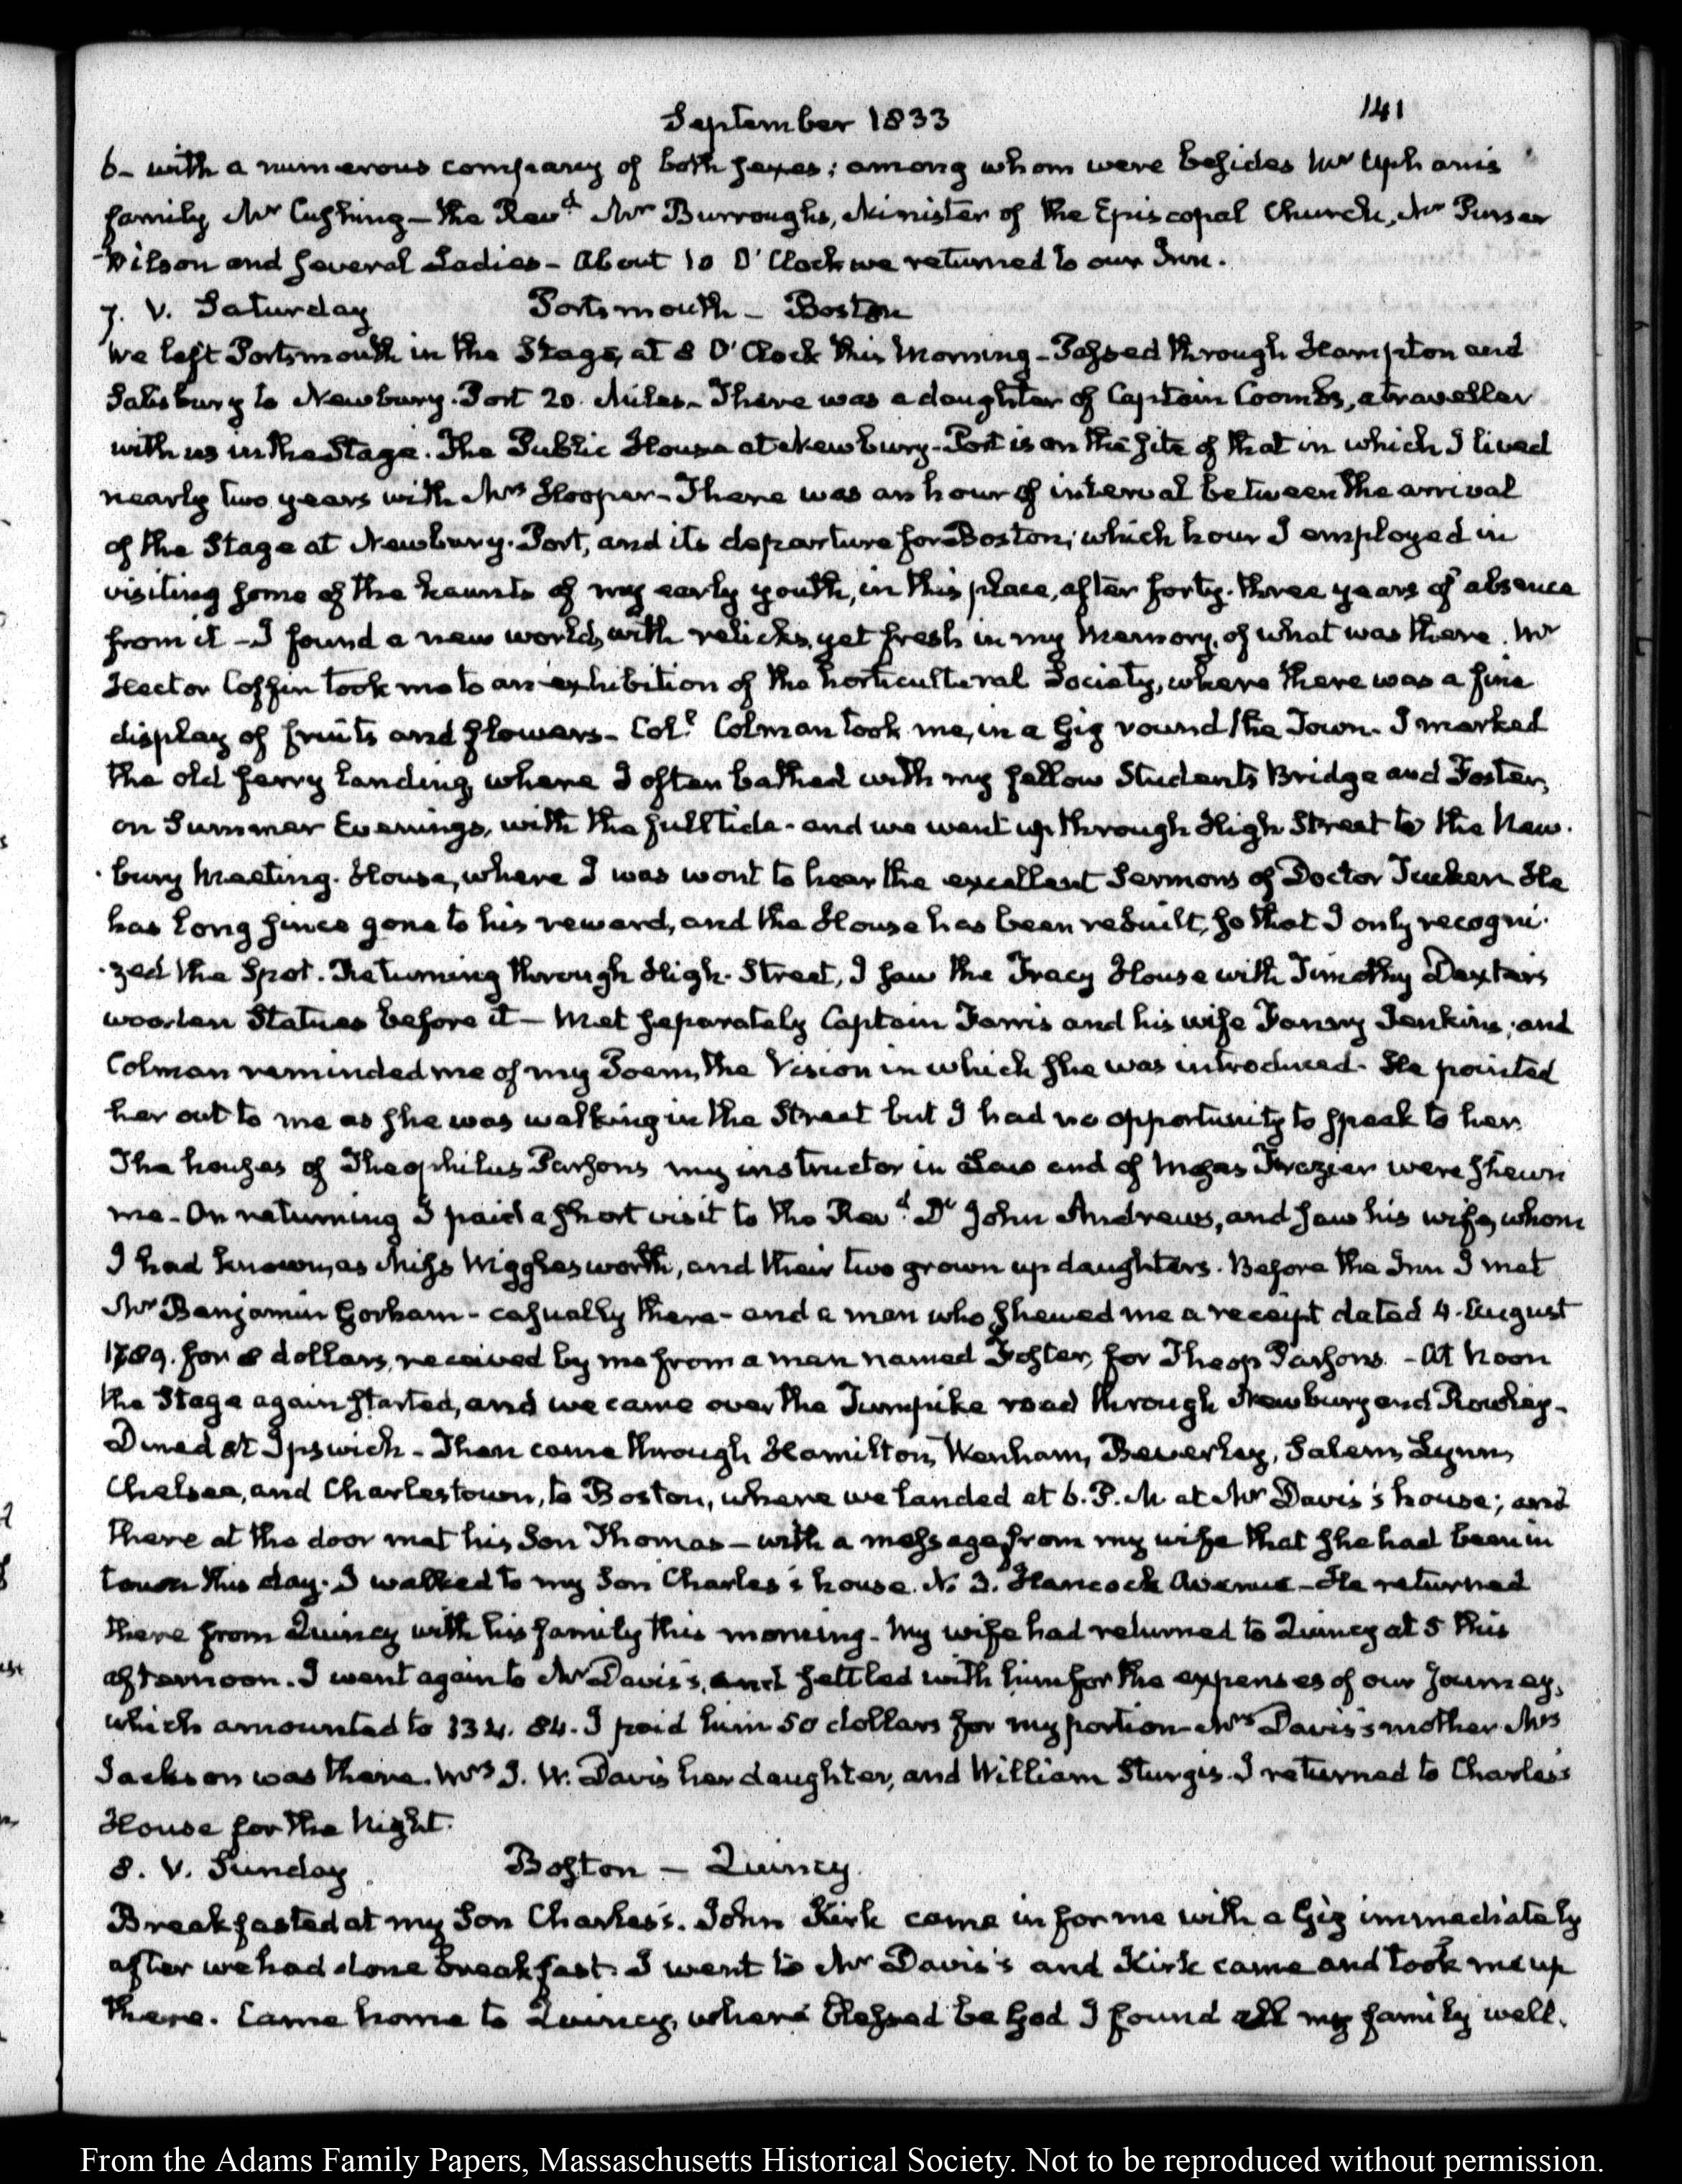 September 1833
141
6- with a numerous company of both sexes; among whom were besides Mr Upham's
family Mr Cushing - the Revd. Mr Burroughs, Minister of the Episcopal Church, Mr Purser
Wilson and several Ladies - About 10 O'Clock we returned to our Inn.
7. V. Saturday Portsmouth - Boston
We left Portsmouth in the Stage, at 8 O'Clock this Morning - Passed through Hampton and
Salisbury to Newbury-Port 20. Miles - There was a daughter of Captain Coombs, a traveller
with us in the Stage. The Public House at Newbury-Port is on the site of that in which I lived
nearly two years with Mrs Hooper - There was an hour of interval between the arrival
of the Stage at Newbury-Port, and its departure for Boston; which hour I employed in
visiting some of the haunts of my early youth, in this place, after forty-three years of absence
from it - I found a new world, with relicks, yet fresh in my Memory, of what was there. Mr
Hector Coffin took me to an exhibition of the horticultural Society, where there was a fine
display of fruits and flowers - Coll. Colman took me, in a Gig round the Town - I marked
the old ferry landing, where I often bathed with my fellow Students Bridge and Foster,
on Summer Evenings, with the full tide - and we went up through High Street to the New-
-bury Meeting-House, where I was wont to hear the excellent Sermons of Doctor Tucker. He
has long since gone to his reward, and the House has been rebuilt, so that I only recogni-
-zed the Spot. Returning through High-Street, I saw the Tracy House with Timothy Dexter's
wooden Statues before it - Met separately Captain Farris and his wife Fanny Jenkins; and
Colman reminded me of my Poem, the Vision in which she was introduced - He pointed
her out to me as she was walking in the Street but I had no opportunity to speak to her.
The houses of Theophilus Parsons my instructor in Law and of Moses Frazier were shewn
me - On returning I paid a short visit to the Revd. Dr John Andrews, and saw his wife, whom
I had known, as Miss Wigglesworth, and their two grown up daughters. Before the Inn I met
Mr Benjamin Gorham - casually there - and a man who shewed me a receipt dated 4. August
1789. for 8 dollars, received by me from a man named Foster, for Theop Parsons. - At Noon
the Stage again started, and we came over the Turnpike road through Newbury and Rowley -
Dined at Ipswich - Then came through Hamilton, Wenham, Beverley, Salem, Lynn,
Chelsea, and Charlestown, to Boston, where we landed at 6. P. M at Mr Davis's house; and
there at the door met his Son Thomas - with a message from my wife that she had been in
town this day. I walked to my Son Charles's house. N. 3. Hancock Avenue - He returned
there from Quincy with his family this morning - My wife had returned to Quincy at 5 this
afternoon. I went again to Mr Davis's, and settled with him for the expenses of our Journey,
which amounted to 134. 84. I paid him 50 dollars for my portion - Mrs Davis's mother Mrs
Jackson was there. Mrs I. W. Davis her daughter, and William Sturgis. I returned to Charles's
House for the Night.
8. V. Sunday Boston - Quincy.
Breakfasted at my Son Charles's. John Kirk came in for me with a Gig immediately
after we had done breakfast. I went to Mr Davis's and Kirk came and took me up
there. Came home to Quincy, where blessed be God I found all my family well.
From the Adams Family Papers, Massachusetts Historical Society. Not to be reproduced without permission.